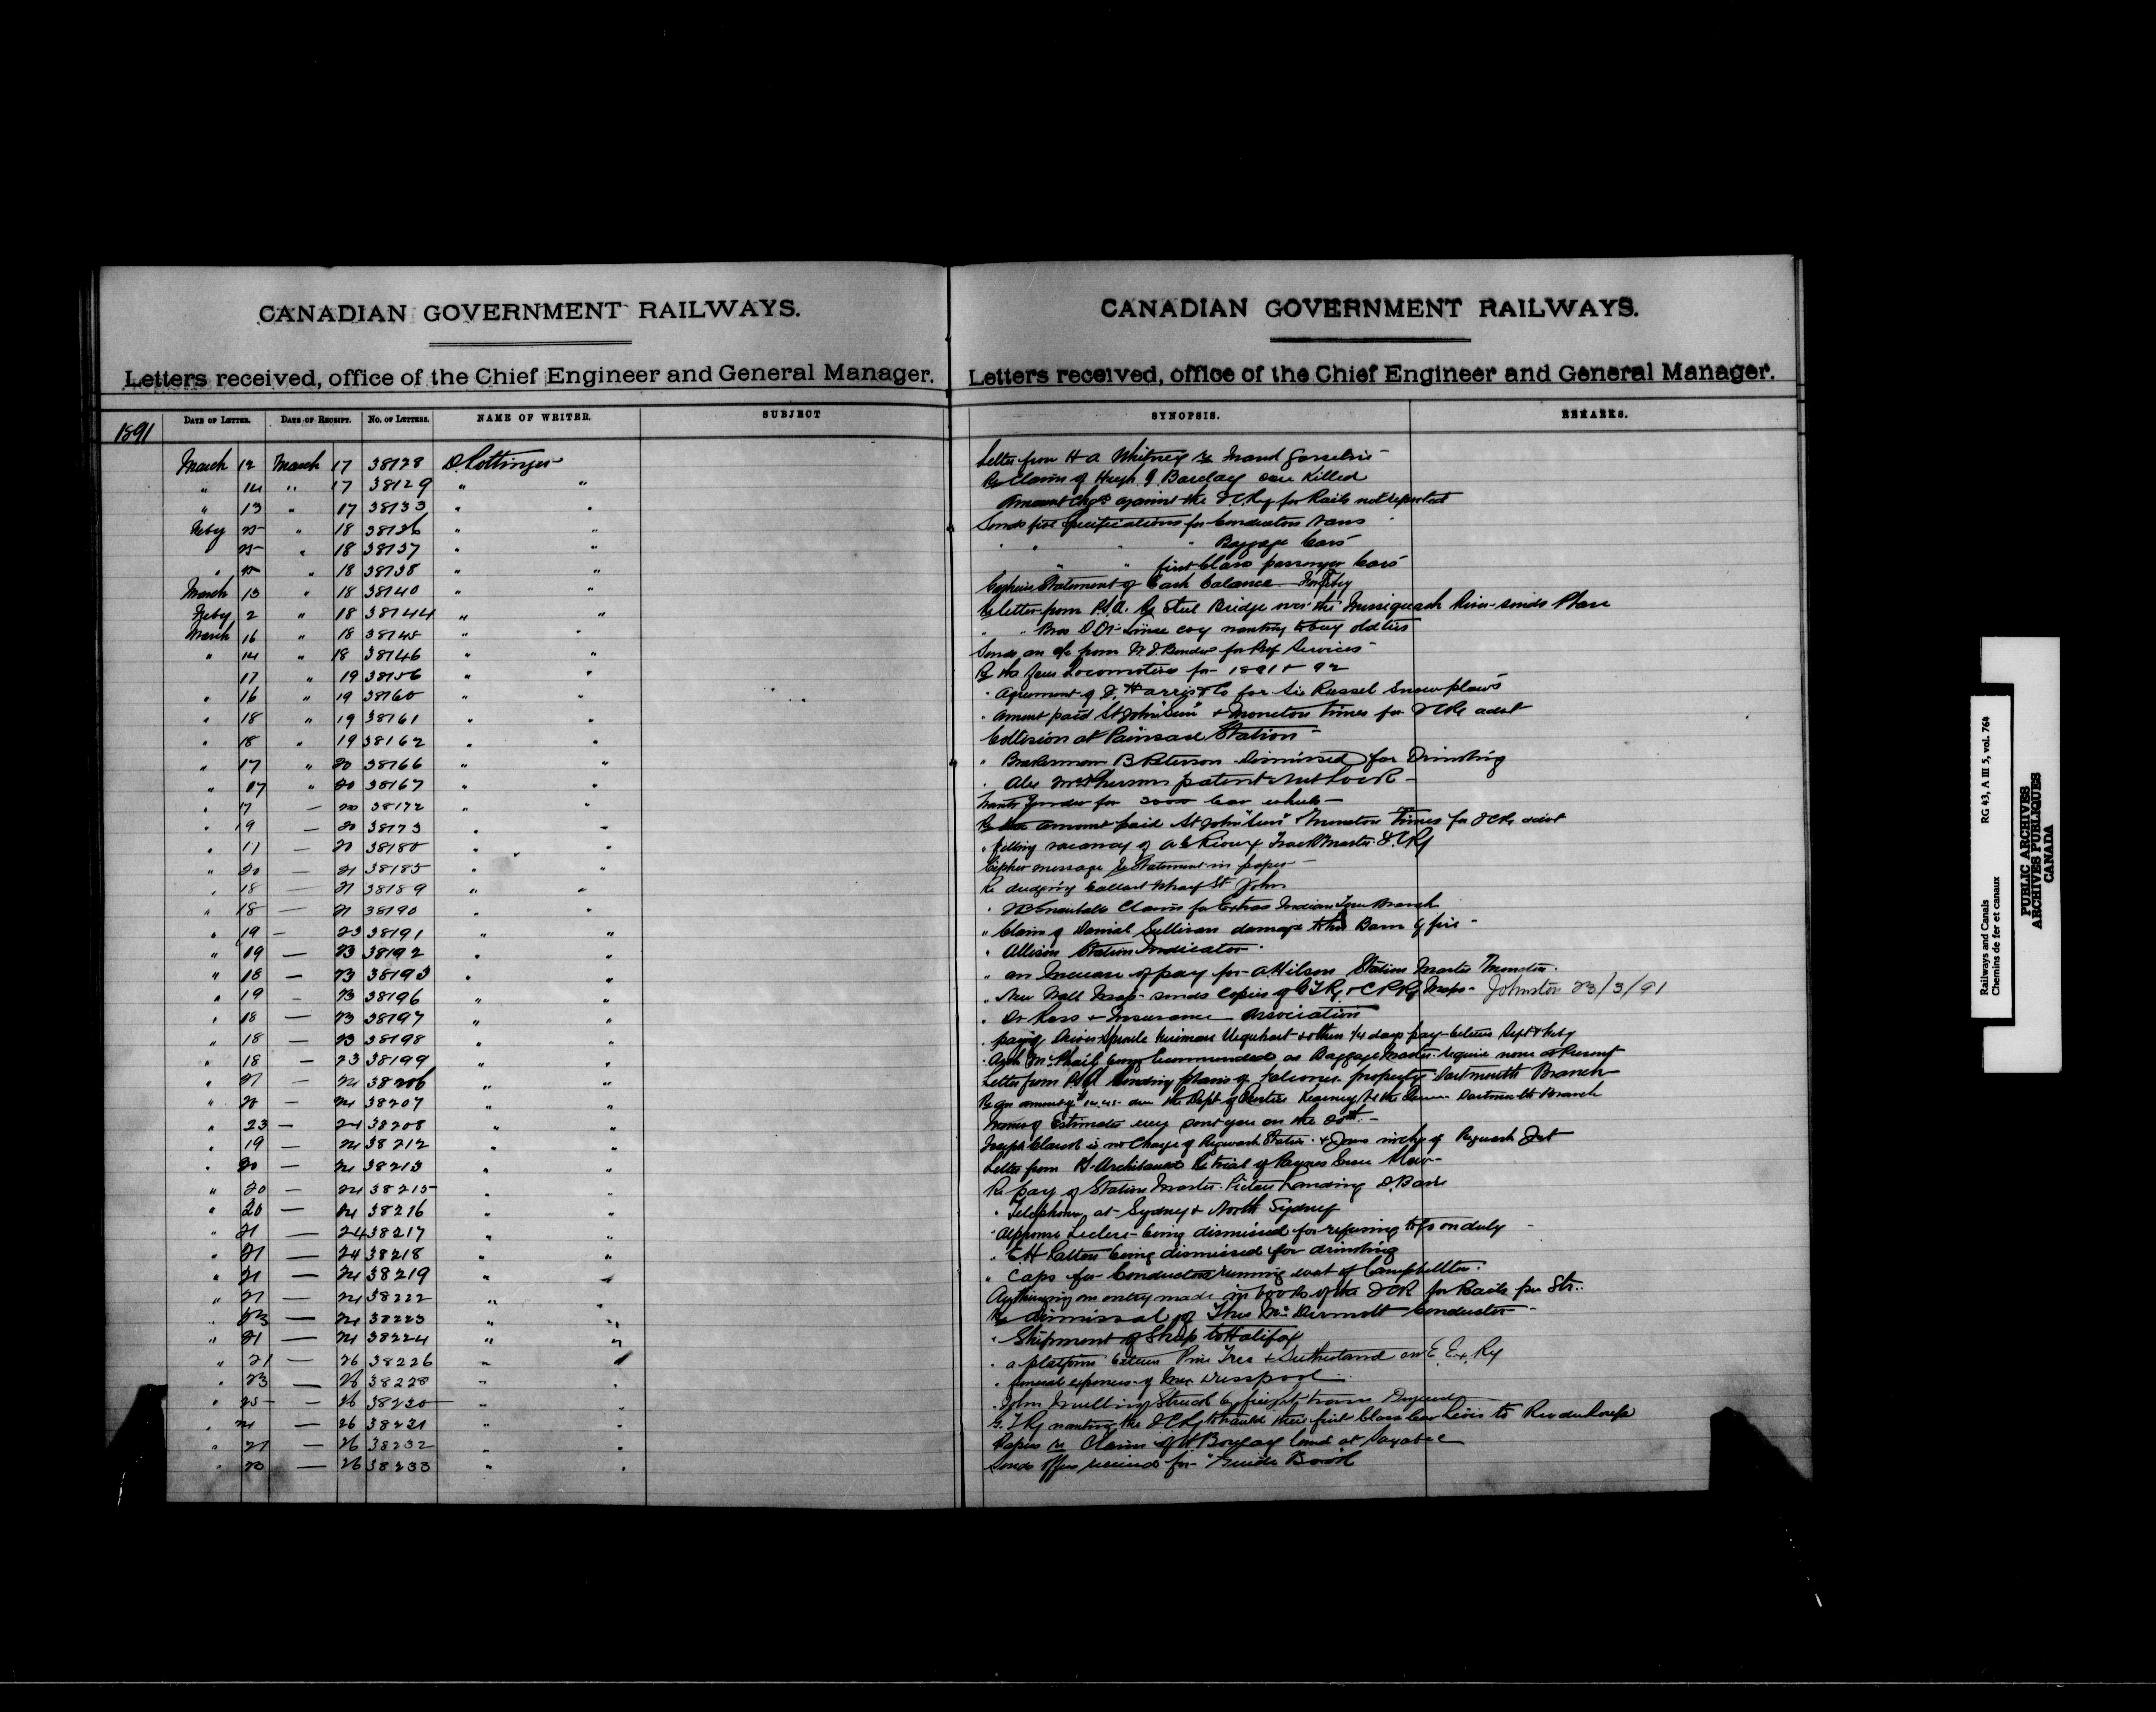 CANADIAN GOVERNMENT RAILWAYS.
Letters received, office of the Chief Engineer and General Manager.
DATE OF LETTER. DATE OF RECEIPT. NO. OF LETTERS. NAME OF WRITER. SUBJECT
1891
March 12 March 17 38128 D. Pottinger
" 14 " 17 38129 " "
" 13 " 17 38133 " "
Feby 25 " 18 38136 " "
25 " 18 38137 " "
" 25 " 18 38138 " "
March 13 " 18 38140 " "
Feby 2 " 18 38144 " "
March 16 " 18 38145 " "
" 14 " 18 38146 " "
17 " 19 38156 " "
" 16 " 19 38160 " "
" 18 " 19 38161 " "
" 18 " 19 38162 " "
" 17 " 20 38166 " "
" 17 " 20 38167 " "
" 17 — 20 38172 " "
" 19 — 20 38173 " "
" 11 — 20 38180 " "
" 20 — 21 38185 " "
" 18 — 21 38189 " "
" 18 — 21 38190 " "
" 19 — 23 38191 " "
" 19 — 23 38192 " "
" 18 — 23 38193 " "
" 19 — 23 38196 " "
" 18 — 23 38197 " "
" 18 — 23 38198 " "
" 18 — 23 38199 " "
" 21 — 24 38206 " "
" 20 — 24 38207 " "
" 23 — 24 38208 " "
" 19 — 24 38212 " "
" 20 — 24 38213 " "
" 20 — 24 38215 " "
" 20 — 24 38216 " "
" 21 — 24 38217 " "
" 21 — 24 38218 " "
" 21 — 24 38219 " "
" 21 — 24 38222 " "
" 23 — 24 38223 " "
" 21 — 24 38224 " "
" 21 — 26 38226 " "
" 23 — 26 38228 " "
" 25 — 26 38230 " "
" 24 — 26 38231 " "
" 21 — 26 38232 " "
" 23 — 26 38233 " "
CANADIAN GOVERNMENT RAILWAYS.
Letters received, office of the Chief Engineer and General Manager.
SYNOPSIS. REMARKS.
Letter from H A Whitney re Maud
Re Claim of Hugh J Barclay cow Killed
Amount Chgd against the ICRy for Rails not reported
Sends five Specifications for Conductors Vans
" " " " Baggage Cars
" " first Class passenger Cars
Statement of Cash balance for Feby
Re letter from P.A. Re Steel Bridge over the Missiguash River sends Plan
" " wanting to buy old ties
Sends an a/c from for Prof Services
Re Locomotives for 1891 & 92
" Agreement of J. Harris & Co for Six Russel Snow plows
" Amount paid St John "Sun" & Moncton Times for ICRy advt
Collision at Painsec Station
" Brakesman B Paterson Dismissed for Drinking
" Alex McPhersons patent Nut Lock
Wants Tender for 2000 Car wheels
Re amount paid St John "Sun" & Moncton Times for ICRy advt
" filling vacancy of A E Rioux Track Master ICRy
Cipher message Re Statement in paper
Re dredging Ballast Wharf St John
" Claims for Extras Indian Town Branch
" Claim of Daniel Sullivan damage to his Barn by fire
" Allison Station Indicator
" an Increase of pay for A Wilson Station Master Moncton
" New Wall Map sends Copies of GTRy & CPRy Maps Johnston 23/3/91
" Dr Ross & Insurance Association
" paying Driver Sproule Fireman Urquhart & others 1/4 days pay between Sept & Feby
" Arch McPhail being Recommended as Baggage Master require none at Present
Letter from P.A. sending plans of Falconer property Dartmouth Branch
Dartmouth Branch
Memo of Estimates sent you on the 20th
Joseph Clarch is in Charge of Pugwash Station & Pugwash Jct
Letter from P. Archibald Re trial of Snow Plow
Re pay of Station Master Pictou Landing
" Telephone at Sydney & North Sydney
" Alphonse Leclerc being dismissed for refusing to go on duty
" E H being dismissed for drinking
" Caps for Conductors running west of Campbellton
Authorizing an entry made in books of the ICR for Rails
Re dismissal of Thos McDermott Conductor
" Shipment of Sheep to Halifax
" a platform between Pine Tree & Sutherland on E Ex. Ry
" funeral expenses of
" John struck by freight train
G.T.Ry wanting the ICRy to haul their first Class Car Levis to Riv du Loup
Papers re Claim of land at Sayabec
Sends Offers received for "Guide Book"
Railways and Canals RG 43, A III 5, vol. 764
Chemins de fer et canaux
PUBLIC ARCHIVES
ARCHIVES PUBLIQUES
CANADA